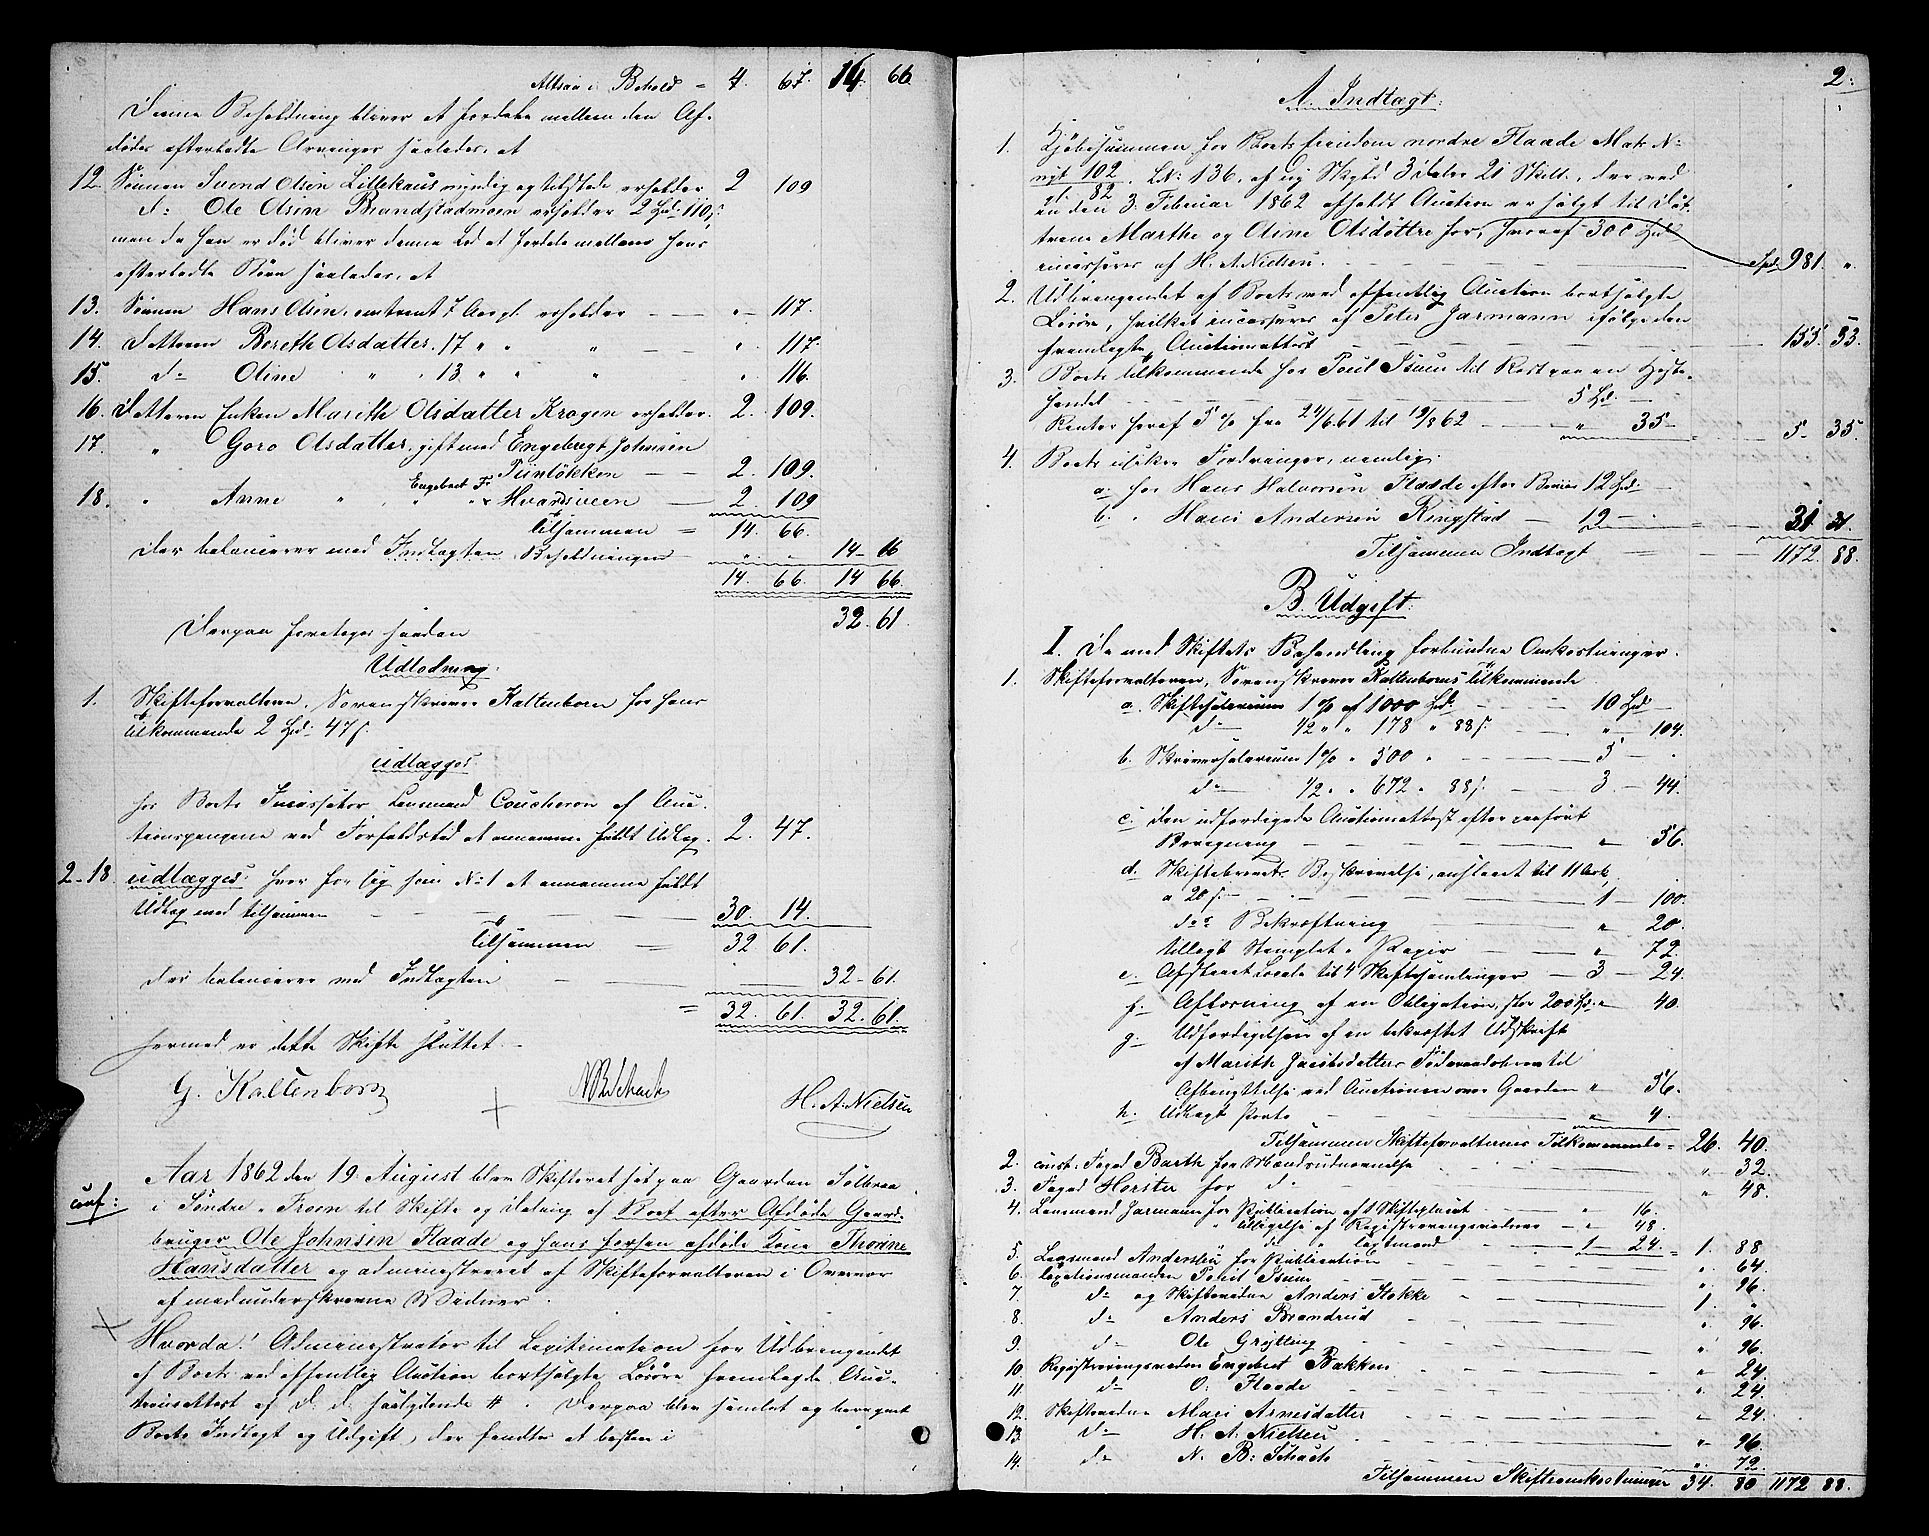 Altsaa i Behold = 4. 67. 14 66
Denne Beholdning bliver at fordele mellem den Af-
dødes efterladte Arvinger saaledes, at
12. Sønnen Svend Olsen Lillekaus myndig og tilstede erholder 2 109
do Ole Olsen Brandstadmoen erholder 2 Spd: 110 s.
men da han er død bliver denne Lod at fordele mellem hans
efterladte Børn saaledes, at
13. Sønnen Hans Olsen, omtrent 7 Aar gl. erholder — — " — 117.
14. Datteren Berethe Olsdatter, 17 " " " — — " 117.
15. do Oline " " 13 " " " — " 116.
16. Datteren Enken Marith Olsdatter Kragen erholder. 2. 109.
17. " Goro Olsdatter, gift med Engebregt Johnsen
Tiinløkken — — 2. 109.
18. " Anne " " " Engebret Fr Hvardsveen — 2 109
Tilsammen = 14. 66.
der balancerer med Indtagten, Beholdningen — " — 14 — 66
14. 66. 14 66.
32. 61.
Derpaa foretoges saadan
Udlodning:
1. Skifteforvalteren, Sorenskriver Kaltenborn for hans
Tilkommende 2 Spd: 47 s.
udlægges
hos Boets Incassator Lensmand Coucheron af Auc-
tionspengene ved Forfaldstid at annamme fuldt Udlæg. 2. 47.
2-18 udlægges hver for sig som No 1 at annamme fuldt
Udlæg med tilsammen — — — — 30. 14.
Tilsammen = 32 61.
der balancerer med Indtagten — — 32 — 61.
= 32. 61. 32. 61.
Hermed er dette Skifte sluttet. —
G. Kaltenborn N B Schach H. A. Nielsen
Aar 1862 den 19. August blev Skifteret sat paa Gaarden Solbraa
conf: i Søndre-Froen til Skifte og Deling af Boet efter Afdøde Gaard-
bruger Ole Johnsen Flaade og hans forhen afdøde Kone Thorine
Hansdatter og administreret af Skifteforvalteren i Overvær
af medunderskrevne Vidner.
Hvorda! Administrator til Legitimation for Udbringendet
af Boets ved offentlig Auction bortsolgte Løsøre fremlagde Auc-
tionsattest af D. D. saalydende # . Derpaa blev samlet og beregnet
Boets Indtægt og Udgift, der fandtes at bestaa i
2.
A. Indtægt:
1. Kjøbesummen for Boets Eiendom nordre Flaade Mats No
nyt 102. LNo: 136, af ny Skyld 3 daler 21 Skill:, der ved
gl. 82
en den 3. Februar 1862 afholdt Auction er solgt til Døt-
trene Marthe og Oline Olsdøttre for, hvoraf 300 Spd
incasseres af H. A. Nielsen. — — — — Spd. 981. "
2. Udbringendet af Boets ved offentlig Auction bortsolgte
Løsøre, hvilket incasseres af Peter Jarmann ifølge den
fremlagte Auctionsattest — — — — 155. 53.
3. Boets tilkommende hos Poul Isum til Rest paa en Heste-
handel — — — — 5 Spd. —
Renter heraf 5 % fra 24/6.61 til 19/8 62 — — " 35 — 5 — 35.
4. Boets usikre Fordringer, nemlig:
a. hos Hans Halvorsen Flaade efter Beviis 12 Spd: —
b. " Hans Andersen Ringstad — 12 — — — 31. 31.
Tilsammen Indtægt — — 1172. 88.
B. Udgift:
I. De med Skiftets Behandling forbundne Omkostninger.
1. Skifteforvalteren, Sorenskriver Kaltenborns Tilkommende
a. Skiftesalarium 1 % af 1000 Spd. — — 10 Spd —
do 1/2 " " 178 " 88 s. — — " — 104.
b. Skriversalarium 1 % " 500 " — — 5 — "
do 1/2 " " 672 " 88 s. — — 3 — 44.
c. Den udfærdigede Auctionsattest efter paaført
Beregning — — — — " — 56.
d. Skiftebrevets Beskrivelse, anslaaet til 11 Ark,
a 20 s. — — — 1 — 100.
do's Bekræftning — — " 20.
tillagt Stemplet-Papir — — " 72.
e. Afsteaet Locale til 4 Skiftesamlinger — 3 — 24.
f. Aflæsning af en Obligation, stor 200 Spd. " — 40.
g. Udfærdigelsen af en bekræftet Udskrift
af Marith Jacobsdatters Føderaadsbrev til
Afbenyttelse ved Auctionen over Gaarden " 56.
h. Udlagt Porto — — — — " 4.
Tilsammen Skifteforvalterens Tilkommende = 26. 40.
2. const. Foged Barth for Mændsudnævnelse — — " 32.
3. Foged Horster for do — — — " 48.
4. Lensmand Jarmann for Publication af 1 Skifteplacat — " 16.
" Tilsigelse af Registreringsvidner — " 48.
do Taxtmænd — — 1 — 24. 1. 88
5. Lensmand Anderslien for Publication — — " 64.
6. Taxationsmanden Poul Isum — — — " 96.
7. do og Skiftevidne Anders Stokke — — 1. "
8. do Anders Brandrud — — — " 96.
9. do Ole Grytting — — — " 96.
10. Registreringsvidne Engebret Bakken — — " 24.
11. do O. Flaade — — — " 24.
12. Skiftevidne Mari Arnesdatter — — — " 24.
13. do H. A. Nielsen — — — " 96.
14. do N. B. Schach — — — " 72.
Tilsammen Skifteomkostninger 34. 80 1172 88.